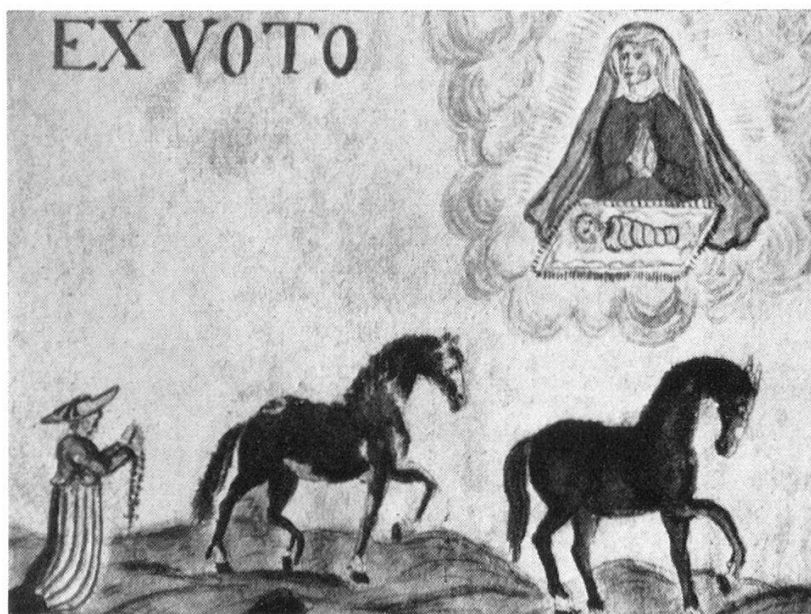 EX VOTO